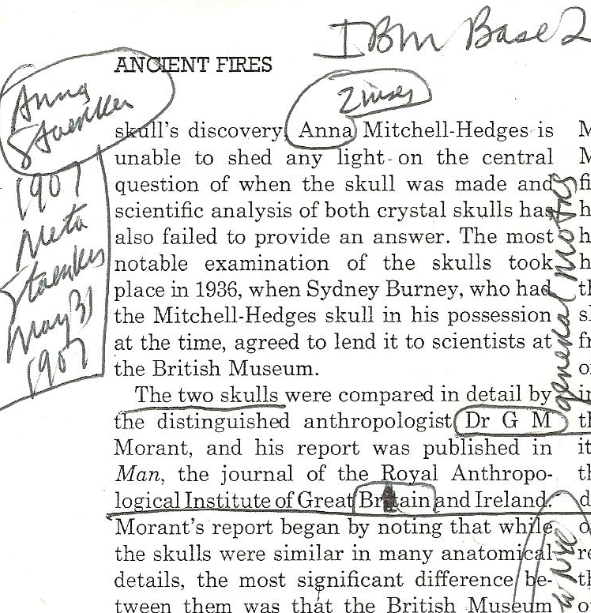 IBM Base 2
ANCIENT FIRES
Anna
Staenker
1907
Meta
Staenker
May 31
1907
skull's discovery, Anna Mitchell-Hedges is
unable to shed any light on the central
question of when the skull was made and
scientific analysis of both crystal skulls has
also failed to provide an answer. The most
notable examination of the skulls took
place in 1936, when Sydney Burney, who had
the Mitchell-Hedges skull in his possession
at the time, agreed to lend it to scientists at
the British Museum.
The two skulls were compared in detail by
the distinguished anthropologist Dr G M
Morant, and his report was published in
Man, the journal of the Royal Anthropo-
logical Institute of Great Britain and Ireland.
Morant's report began by noting that while
the skulls were similar in many anatomical
details, the most significant difference be-
tween them was that the British Museum
general motors